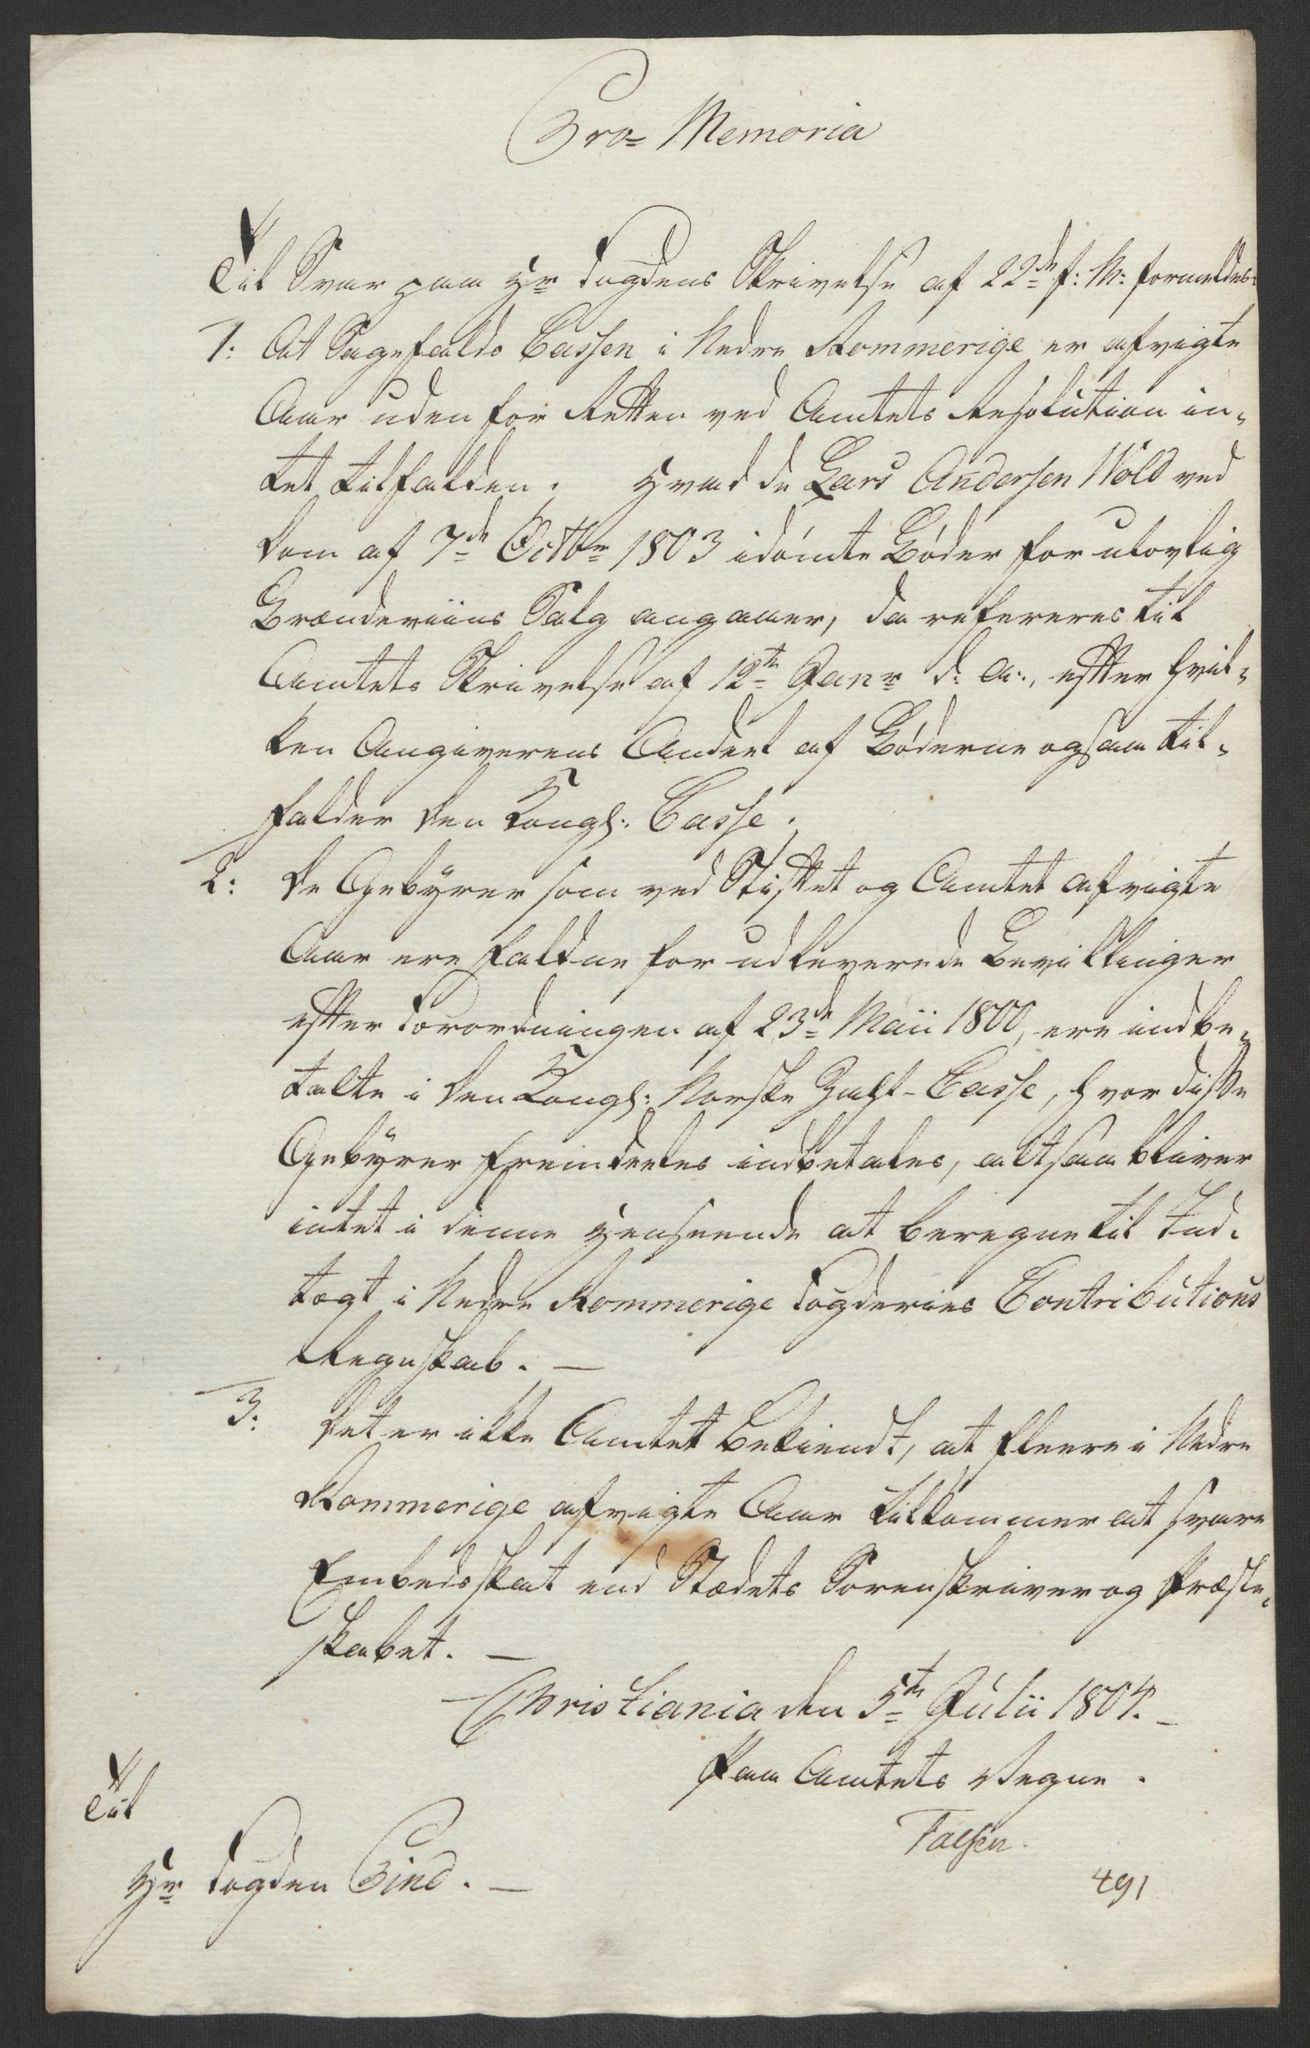 Pro Memoria
Til Svar paa Hr Fogdens Skrivelse af 22de f: M: formeldes:
1: At Sagefalds Cassen i Nedre Rommerige er afvigte
Aar uden for Retten ved Amtets Resolution in-
tet tilfalden. Hvad de Lars Andersen Wold ved
Dom af 7de Octbr 1803 idømte Bøder for ulovlig
Brændeviins Salg angaaer, da refereres til
Amtets Skrivelse af 12te Janr d: A:, efter hvil-
ken Angiverens Andeel af Bøderne ogsaa til-
falder den Kongl: Casse.
2: De Gebyrer som ved Stiftet og Amtet afvigte
Aar ere faldne for udleverede Bevillinger
efter Forordningen af 23de Maii 1800, ere indbe-
talte i den Kongl: Norske Zahl-Casse, hvor disse
Gebyrer fremdeles indbetales, altsaa bliver
intet i denne Henseende at beregne til Ind-
tægt i Nedre Rommerige Fogderies Contributions
Regnskab. —
3: Det er ikke Amtet bekiendt, at fleere i Nedre
Rommerige afvigte Aar tilkommer at svare
Embedsskat end Stædets Sorenskriver og Præste-
skabet. —
Christiania den 5te Julii 1804. —
Paa Amtets Vegne.
Falsen
Til
Hr Fogden Bind. —
491